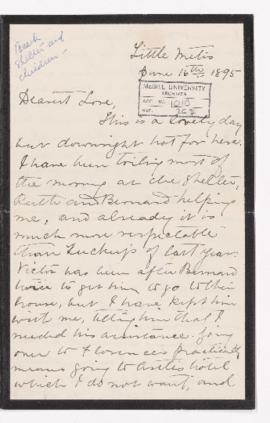 Beach
Shelter and
children
Little Metis
June 16th 1895
McGILL UNIVERSITY
ARCHIVES
ACC. NO. 1010
REF.
Dearest Love,
This is a lovely day
but downright hot for here.
I have been toiling most of
the morning at the shelter,
Ruth and Bernard helping
me, and already it is
much more respectable
than Tuckup's of last year.
Victor has been after Bernard
twice to get him to go to their
house, but I have kept him
with me, telling him that I
needed his assistance. Going
over to Florence's practically
means going to hotel
which I do not want, and